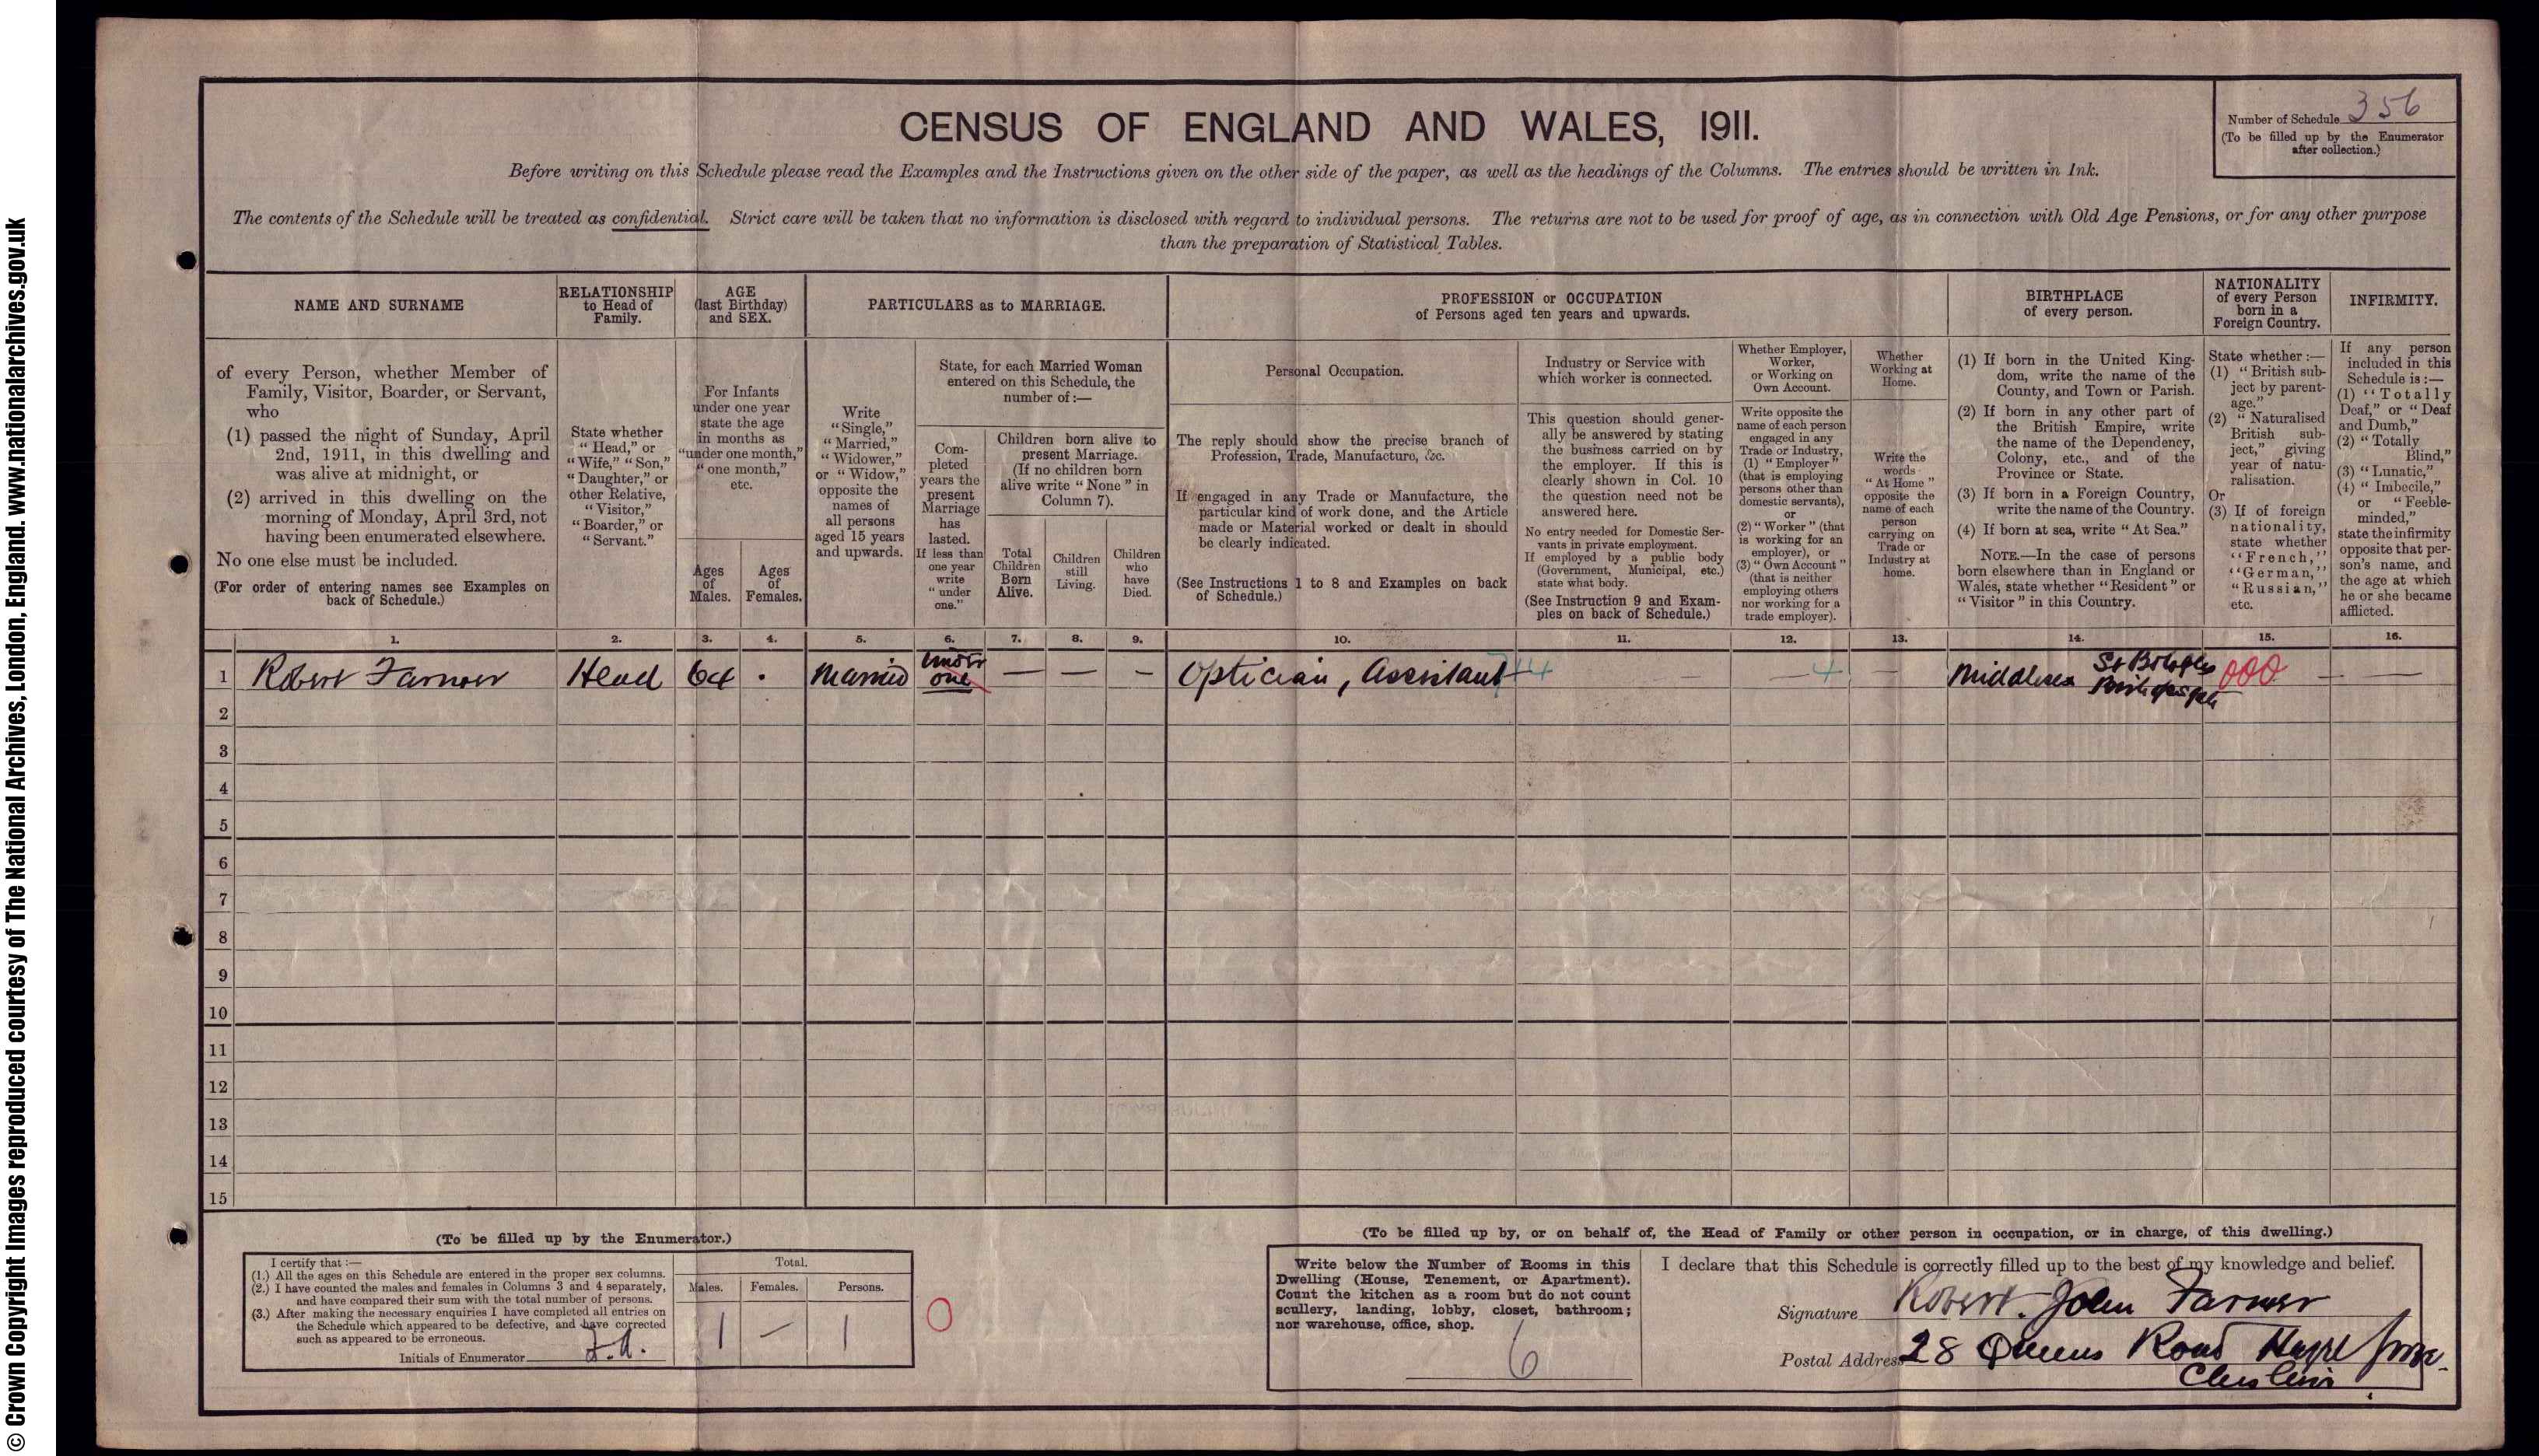 © Crown Copyright Images reproduced courtesy of The National Archives, London, England. www.nationalarchives.gov.uk
CENSUS OF ENGLAND AND WALES, 1911.
Number of Schedule 356
(To be filled up by the Enumerator
after collection.)
Before writing on this Schedule please read the Examples and the Instructions given on the other side of the paper, as well as the headings of the Columns. The entries should be written in Ink.
The contents of the Schedule will be treated as confidential. Strict care will be taken that no information is disclosed with regard to individual persons. The returns are not to be used for proof of age, as in connection with Old Age Pensions, or for any other purpose
than the preparation of Statistical Tables.
NAME AND SURNAME
of every Person, whether Member of
Family, Visitor, Boarder, or Servant,
who
(1) passed the night of Sunday, April
2nd, 1911, in this dwelling and
was alive at midnight, or
(2) arrived in this dwelling on the
morning of Monday, April 3rd, not
having been enumerated elsewhere.
No one else must be included.
(For order of entering names see Examples on
back of Schedule.)
RELATIONSHIP
to Head of
Family.
State whether
"Head," or
"Wife," "Son,"
"Daughter," or
other Relative,
"Visitor,"
"Boarder," or
"Servant."
AGE
(last Birthday)
and SEX.
For Infants
under one year
state the age
in months as
"under one month,"
"one month,"
etc.
Ages
of
Males.
Ages
of
Females.
PARTICULARS as to MARRIAGE.
Write
"Single,"
"Married,"
"Widower,"
or "Widow,"
opposite the
names of
all persons
aged 15 years
and upwards.
State, for each Married Woman
entered on this Schedule, the
number of:—
Com-
pleted
years the
present
Marriage
has
lasted.
If less than
one year
write
"under
one."
Children born alive to
present Marriage.
(If no children born
alive write "None" in
Column 7).
Total
Children
Born
Alive.
Children
still
Living.
Children
who
have
Died.
PROFESSION or OCCUPATION
of Persons aged ten years and upwards.
Personal Occupation.
The reply should show the precise branch of
Profession, Trade, Manufacture, &c.
If engaged in any Trade or Manufacture, the
particular kind of work done, and the Article
made or Material worked or dealt in should
be clearly indicated.
(See Instructions 1 to 8 and Examples on back
of Schedule.)
Industry or Service with
which worker is connected.
This question should gener-
ally be answered by stating
the business carried on by
the employer. If this is
clearly shown in Col. 10
the question need not be
answered here.
No entry needed for Domestic Ser-
vants in private employment.
If employed by a public body
(Government, Municipal, etc.)
state what body.
(See Instruction 9 and Exam-
ples on back of Schedule.)
Whether Employer,
Worker,
or Working on
Own Account.
Write opposite the
name of each person
engaged in any
Trade or Industry,
(1) "Employer"
(that is employing
persons other than
domestic servants),
or
(2) "Worker" (that
is working for an
employer), or
(3) "Own Account"
(that is neither
employing others
nor working for a
trade employer).
Whether
Working at
Home.
Write the
words
"At Home"
opposite the
name of each
person
carrying on
Trade or
Industry at
home.
BIRTHPLACE
of every person.
(1) If born in the United King-
dom, write the name of the
County, and Town or Parish.
(2) If born in any other part of
the British Empire, write
the name of the Dependency,
Colony, etc., and of the
Province or State.
(3) If born in a Foreign Country,
write the name of the Country.
(4) If born at sea, write "At Sea."
NOTE.—In the case of persons
born elsewhere than in England or
Wales, state whether "Resident" or
"Visitor" in this Country.
NATIONALITY
of every Person
born in a
Foreign Country.
State whether:—
(1) "British sub-
ject by parent-
age."
(2) "Naturalised
British sub-
ject," giving
year of natu-
ralisation.
Or
(3) If of foreign
nationality,
state whether
"French,"
"German,"
"Russian,"
etc.
INFIRMITY.
If any person
included in this
Schedule is:—
(1) "Totally
Deaf," or "Deaf
and Dumb,"
(2) "Totally
Blind,"
(3) "Lunatic,"
(4) "Imbecile,"
or "Feeble-
minded,"
state the infirmity
opposite that per-
son's name, and
the age at which
he or she became
afflicted.
1. 2. 3. 4. 5. 6. 7. 8. 9. 10. 11. 12. 13. 14. 15. 16.
1 Robert Farmer Head 64 Married under one — — — Optician, Assistant — — 4 — Middlesex St Botolphs Bishopsgate 000 —
2
3
4
5
6
7
8
9
10
11
12
13
14
15
(To be filled up by the Enumerator.)
I certify that:—
(1.) All the ages on this Schedule are entered in the proper sex columns.
(2.) I have counted the males and females in Columns 3 and 4 separately,
and have compared their sum with the total number of persons.
(3.) After making the necessary enquiries I have completed all entries on
the Schedule which appeared to be defective, and have corrected
such as appeared to be erroneous.
Initials of Enumerator
Total.
Males. Females. Persons.
1 — 1
0
(To be filled up by, or on behalf of, the Head of Family or other person in occupation, or in charge, of this dwelling.)
Write below the Number of Rooms in this
Dwelling (House, Tenement, or Apartment).
Count the kitchen as a room but do not count
scullery, landing, lobby, closet, bathroom;
nor warehouse, office, shop.
6
I declare that this Schedule is correctly filled up to the best of my knowledge and belief.
Signature Robert John Farmer
Postal Address 28 Queens Road Hazel Grove
Cheshire